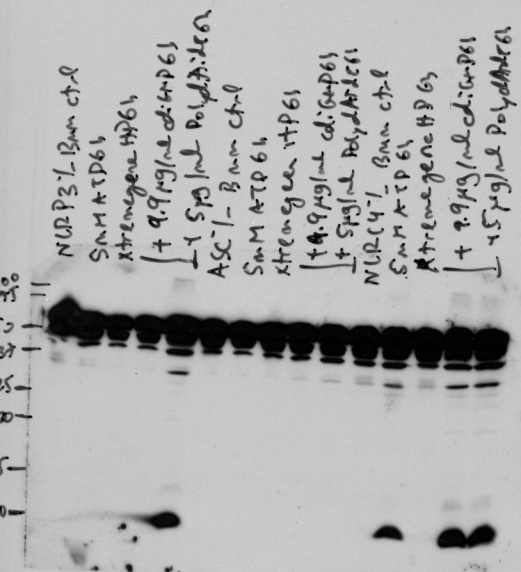 NLRP3-/- Bmm ctrl
5mM ATP 6h
Xtremegene HP 6h
+ 9.9µg/ml cdiGMP 6h
+ 5µg/ml PolydAdT 6h
ASC-/- Bmm ctrl
5mM ATP 6h
Xtremegene HP 6h
+ 9.9µg/ml cdiGMP 6h
+ 5µg/ml PolydAdT 6h
NLRC4-/- Bmm ctrl
5mM ATP 6h
Xtremegene HP 6h
+ 9.9µg/ml cdiGMP 6h
+ 5µg/ml PolydAdT
37
25
20